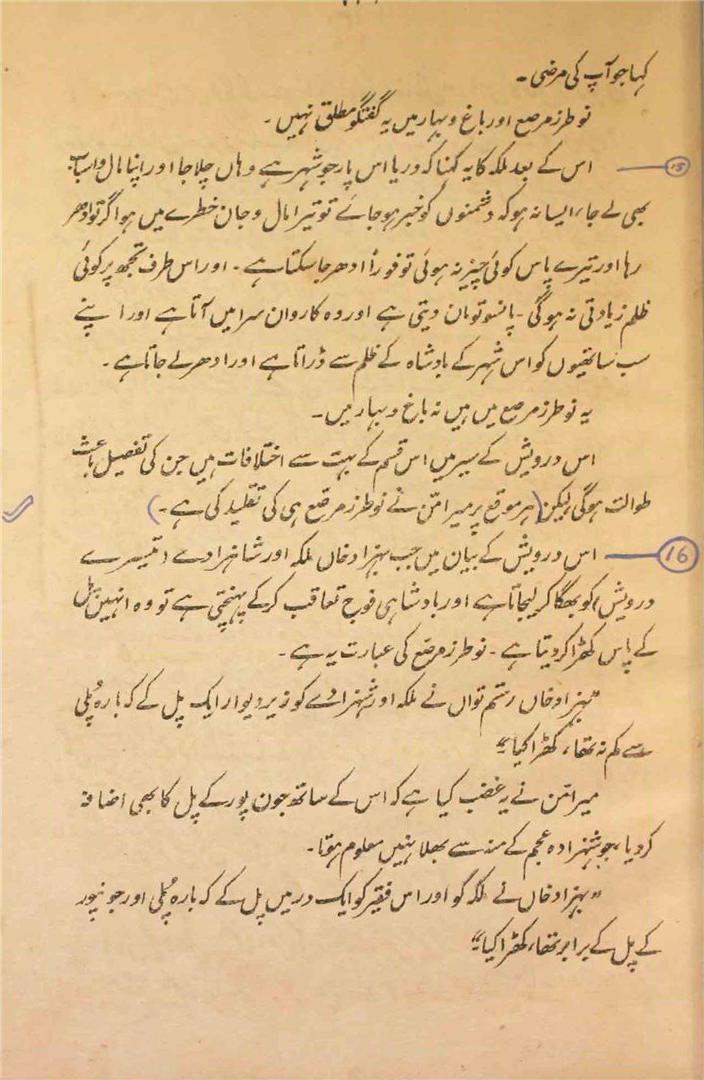 کہا جو آپ کی مرضی ۔
نو طرز مرصع اور باغ و بہار میں یہ گفتگو مطلق نہیں ۔
15
اس کے بعد ملکہ کا یہ کہنا کہ دریا اس پار جو شہر ہے وہاں چلا جا اور اپنا مال و اسباب
بھی لے جا، ایسا نہ ہو کہ دشمنوں کو خبر ہو جائے تو تیرا مال و جان خطرے میں ہو اگر تو ادھر
رہا اور تیرے پاس کوئی چیز نہ ہوئی تو فوراً ادھر جا سکتا ہے ۔ اور اس طرف تجھ پر کوئی
ظلم زیادتی نہ ہوگی ۔ پانسو تومان دیتی ہے اور وہ کاروان سرا میں آتا ہے اور اپنے
سب ساتھیوں کو اس شہر کے بادشاہ کے ظلم سے ڈراتا ہے اور ادھر لے جاتا ہے ۔
یہ نو طرز مرصع میں ہیں نہ باغ و بہار میں ۔
اس درویش کے سیر میں اس قسم کے بہت سے اختلافات ہیں جن کی تفصیل باعث
طوالت ہوگی لیکن (ہر موقع پر میر امّن نے نو طرز مرصع ہی کی تقلید کی ہے ۔)
16
اس درویش کے بیان میں جب بہزاد خاں ملکہ اور شاہزادے (تیسرے
درویش) کو بھگا کر لیجاتا ہے اور بادشاہی فوج تعاقب کر کے پہنچتی ہے تو وہ انہیں پل
کے پاس کھڑا کر دیتا ہے ۔ نو طرز مرصّع کی عبارت یہ ہے ۔
"بہزاد خاں رستم تواں نے ملکہ اور شہزادے کو زیر دیوار ایک پل کے کہ بارہ پُلی
سے کم نہ تھا، کھڑا کیا"
میر امّن نے یہ غضب کیا ہے کہ اس کے ساتھ جون پور کے پل کا بھی اضافہ
کر دیا، جو شہزادہ عجم کے منہ سے بھلا نہیں معلوم ہوتا ۔
"بہزاد خاں نے ملکہ کو اور اس فقیر کو ایک در میں پل کے کہ بارہ پُلی اور جونپور
کے پل کے برابر تھا، کھڑا کیا"